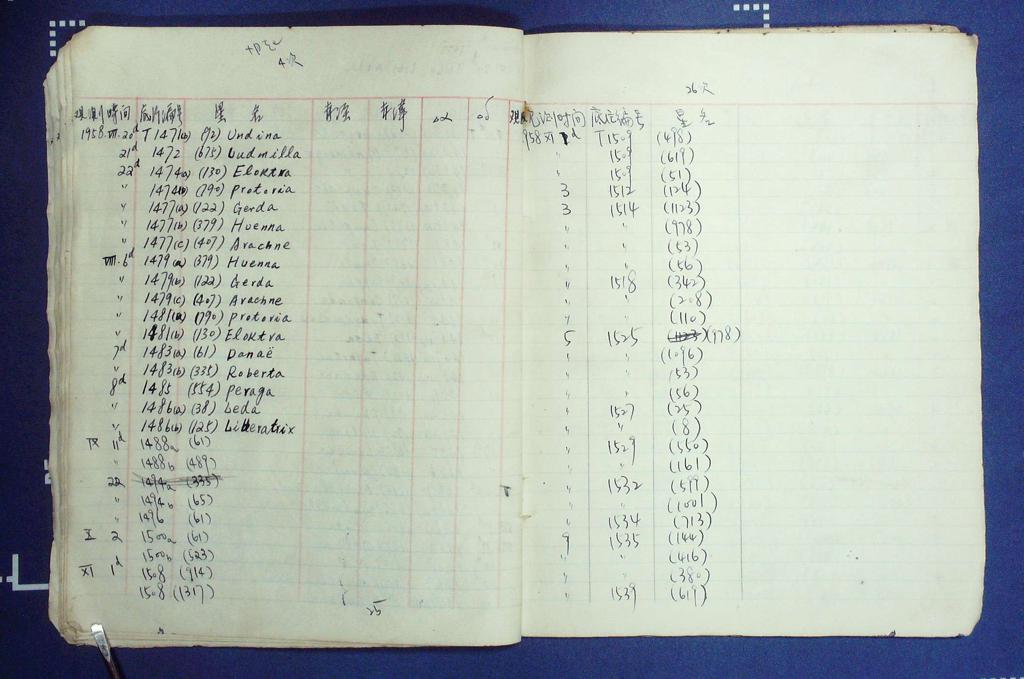 4次
观测时间 底片编号 星名
1958.VII.20d T1471(b) (92) Undina
21d 1472 (675) Ludmilla
22d 1474(a) (130) Elektra
" 1474(b) (790) Pretoria
" 1477(a) (122) Gerda
" 1477(b) (379) Huenna
" 1477(c) (407) Arachne
VIII.6d 1479(a) (379) Huenna
" 1479(b) (122) Gerda
" 1479(c) (407) Arachne
" 1481(a) (790) Pretoria
" 1481(b) (130) Elektra
7d 1483(a) (61) Danaë
" 1483(b) (335) Roberta
8d 1485 (554) Peraga
" 1486(a) (38) Leda
" 1486(b) (125) Liberatrix
IX 11d 1488a (61)
" 1488b (489)
22 1494a (335)
" 1494b (65)
" 1496 (61)
X 2 1500a (61)
1500b (523)
XI 1d 1508 (914)
1508 (1317)
25
26次
观测时间 底片编号 星名
1958 XI 1d T1509 (498)
" 1509 (619)
" 1509 (51)
3 1512 (124)
3 1514 (1123)
" " (978)
" " (53)
" " (56)
" 1518 (342)
" " (208)
" " (110)
5 1525 (1123) (978)
" " (1096)
" " (53)
" " (56)
" 1527 (25)
" " (8)
" 1529 (550)
" " (161)
" 1532 (511)
" " (1001)
" 1534 (713)
9 1535 (144)
" " (416)
" " (380)
" 1539 (619)